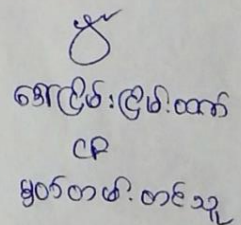 ဒေါ်ငြိမ်းငြိမ်းထက်
CP
မှတ်တမ်းတင်သူ